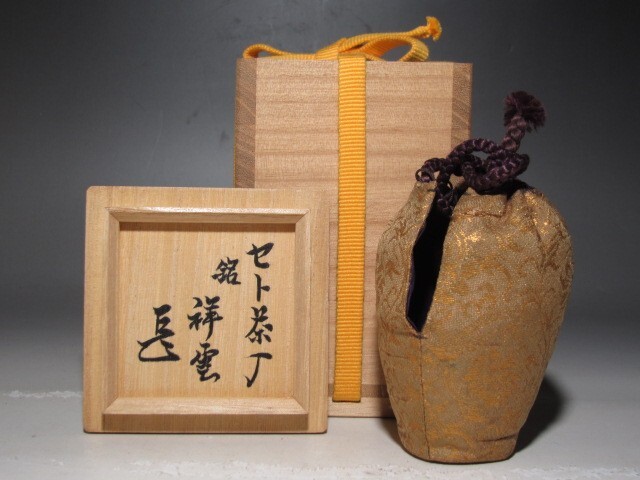 セト茶入
銘
祥雲